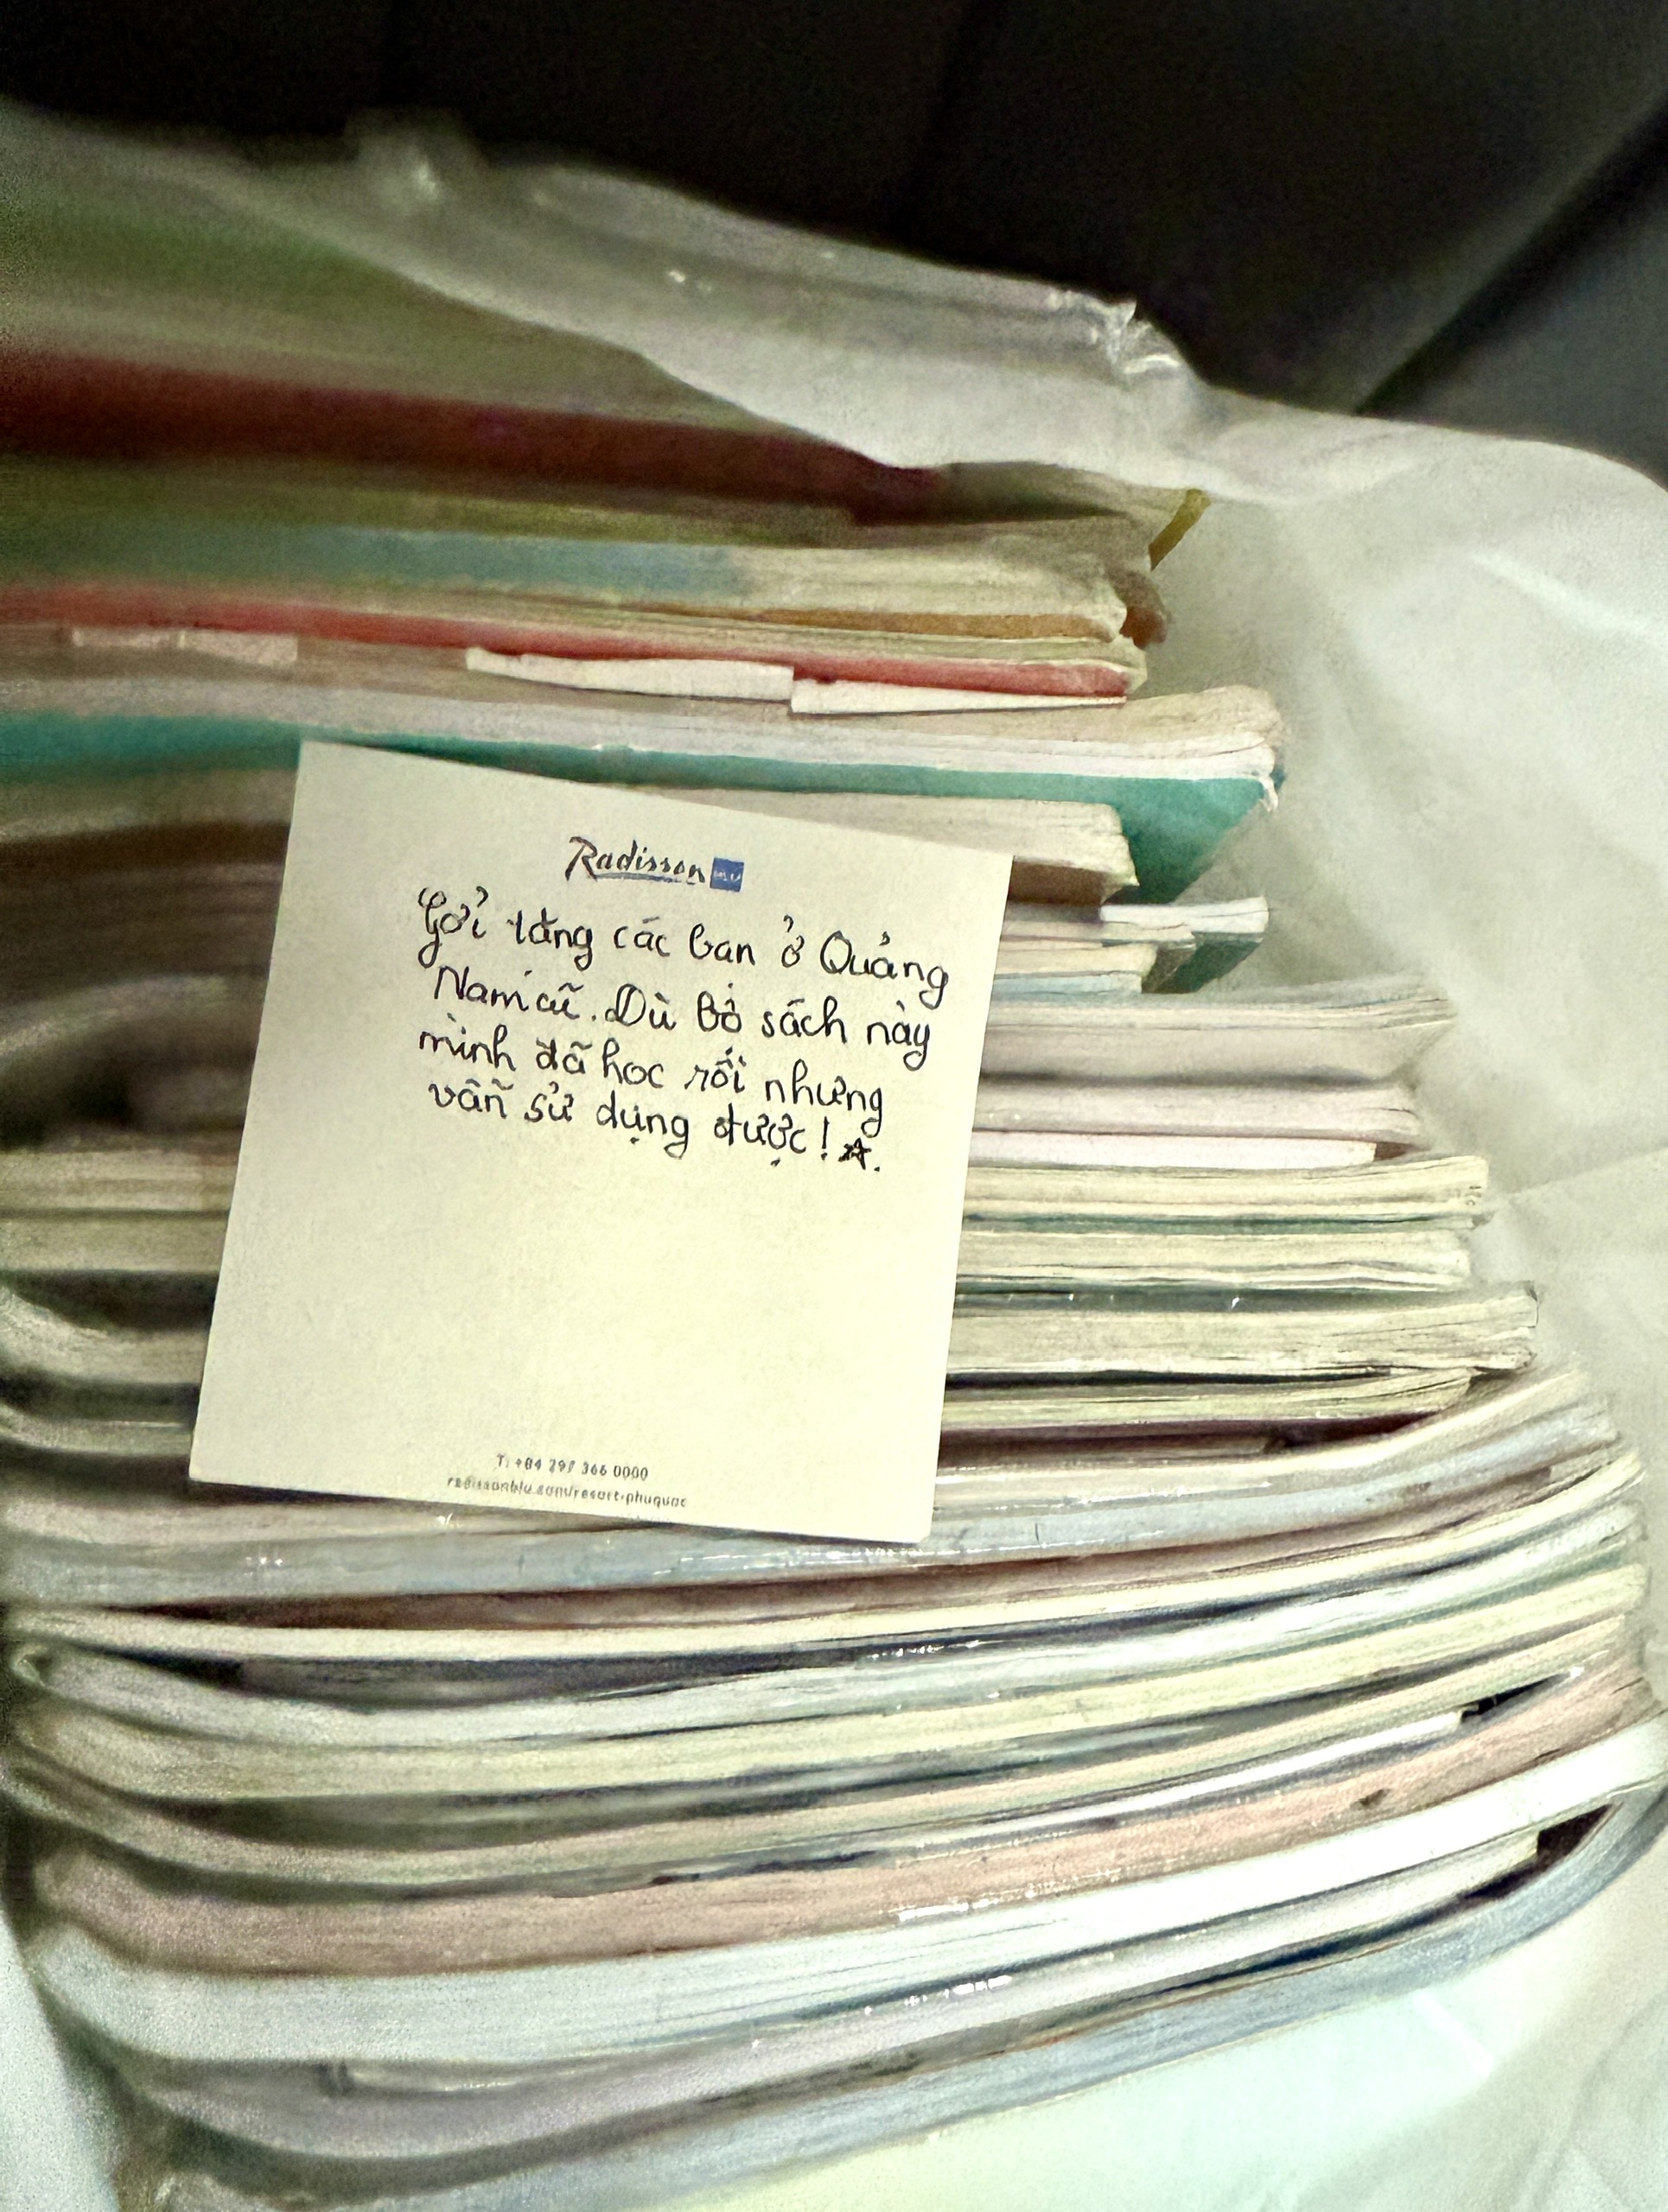 Radisson BLU
Gởi tặng các bạn ở Quảng
Nam cũ. Dù bộ sách này
mình đã học rồi nhưng
vẫn sử dụng được!
T: +84 297 366 0000
radissonblu.com/resort-phuquoc